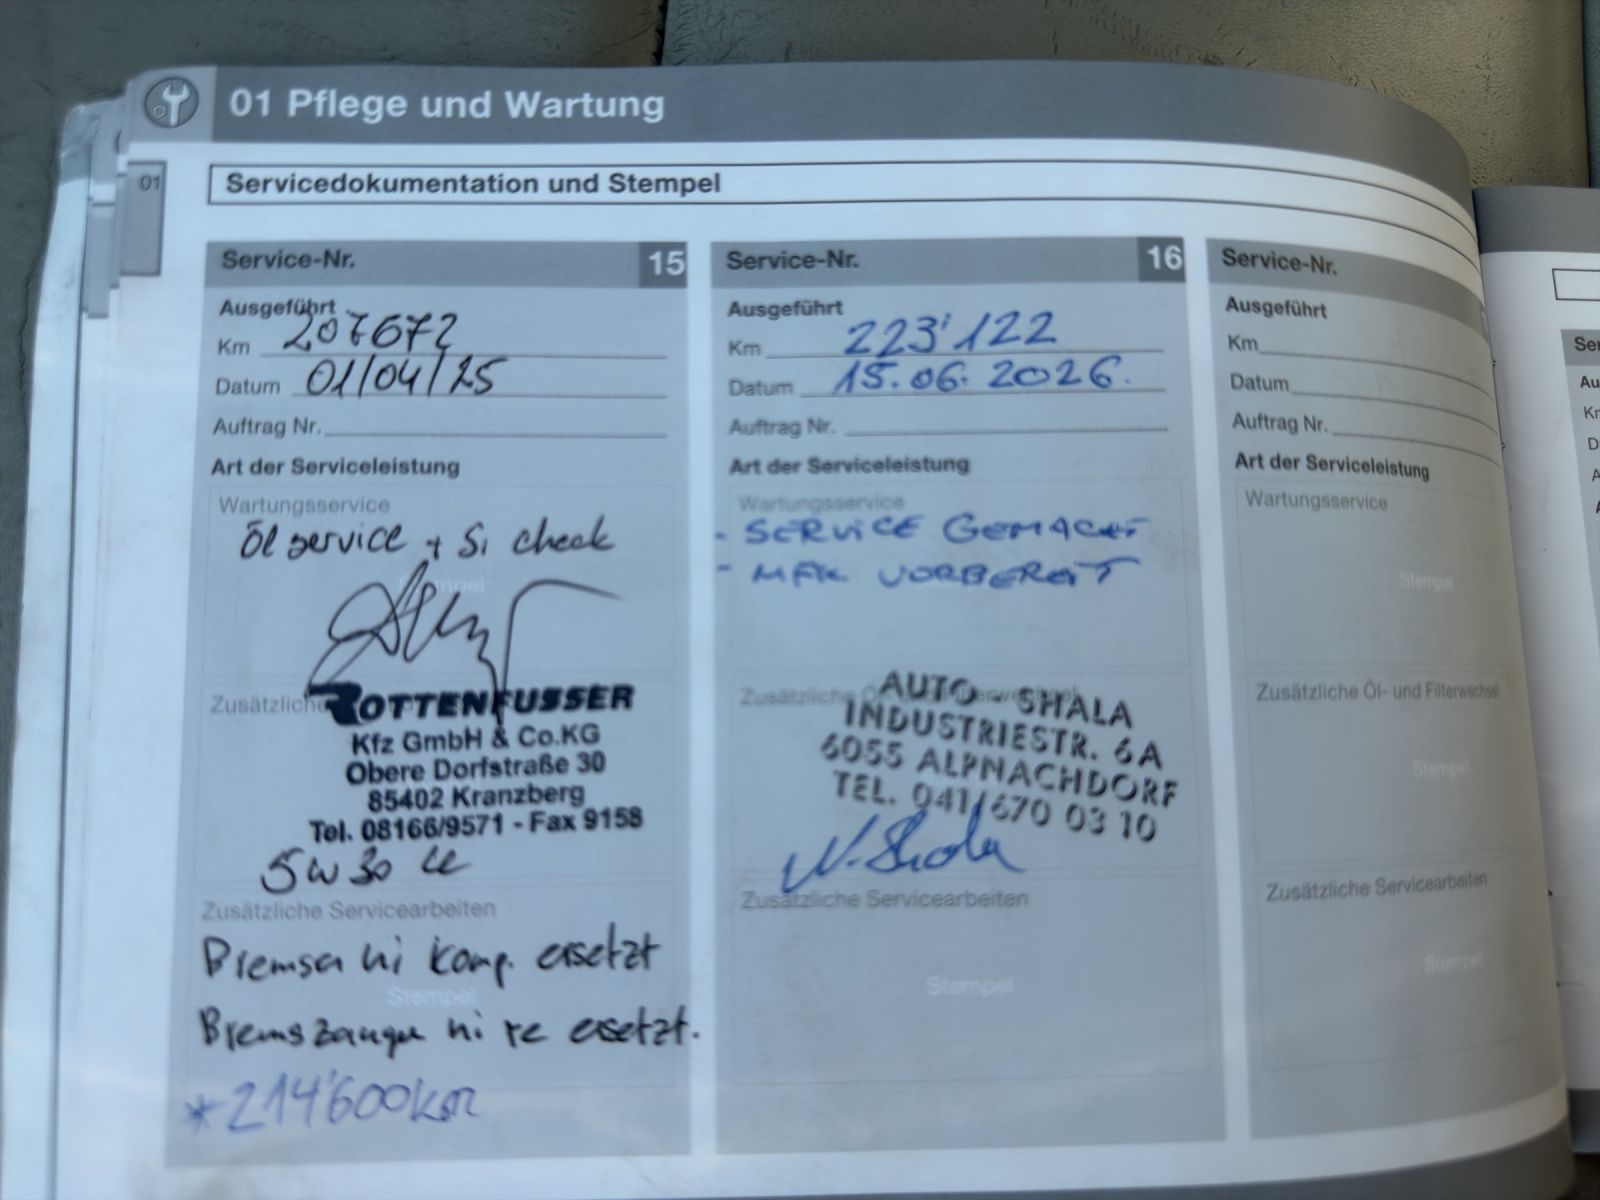 01 Pflege und Wartung
01
Servicedokumentation und Stempel
Service-Nr. 15
Ausgeführt
Km 207672
Datum 01/04/25
Auftrag Nr.
Art der Serviceleistung
Wartungsservice
Öl service + Si check
Stempel
Zusätzliche
ROTTENFUSSER
Kfz GmbH & Co.KG
Obere Dorfstraße 30
85402 Kranzberg
Tel. 08166/9571 - Fax 9158
5W30
Zusätzliche Servicearbeiten
Bremsen hi komp. ersetzt
Stempel
Bremszangen hi re ersetzt.
*214'600km
Service-Nr. 16
Ausgeführt
Km 223'122
Datum 15.06.2026.
Auftrag Nr.
Art der Serviceleistung
Wartungsservice
- SERVICE GEMACHT
- MFK VORBEREIT
Zusätzliche
AUTO - SHALA
INDUSTRIESTR. 6A
6055 ALPNACHDORF
TEL. 041/670 03 10
N. Shala
Zusätzliche Servicearbeiten
Stempel
Service-Nr.
Ausgeführt
Km
Datum
Auftrag Nr.
Art der Serviceleistung
Wartungsservice
Stempel
Zusätzliche Öl- und Filterwechsel
Stempel
Zusätzliche Servicearbeiten
Stempel